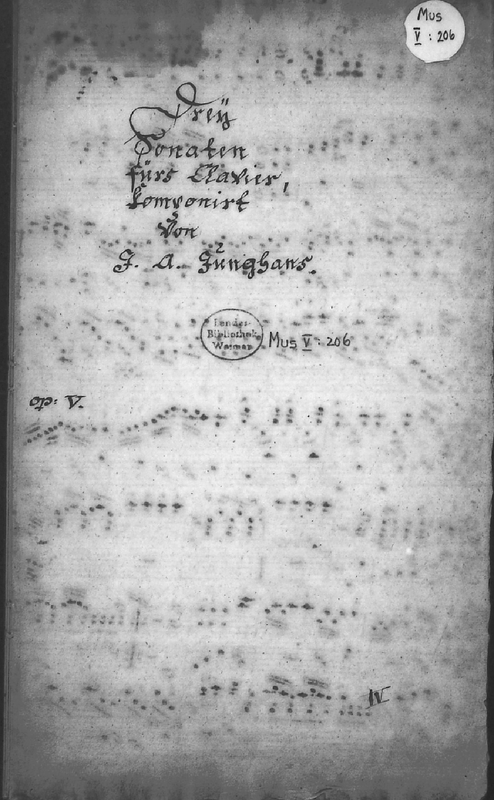 Mus
V : 206
Dreÿ
Sonaten
fürs Clavier,
komponirt
von
J. A. Junghans.
Landes-
Bibliothek
Weimar
Mus V : 206
op: V.
IV